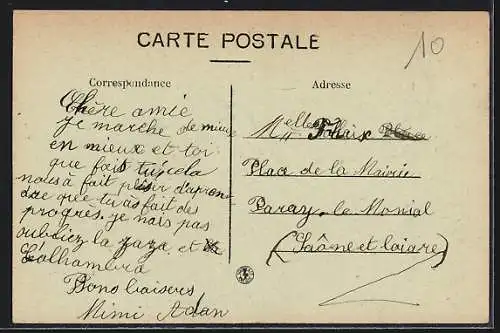 CARTE POSTALE
10
Correspondance
Adresse
Chère amie
je marche de mieux
en mieux et toi
que fais tu, cela
nous à fait plésir d'aprend
dre que tu as fait des
progrès. je n'ais pas
oubliez la zaza et
L'olhambra
Bons baisers
Mimi Adan
Melle
Place de la Mairie
Paray-le Monial
(Saône et loiare)